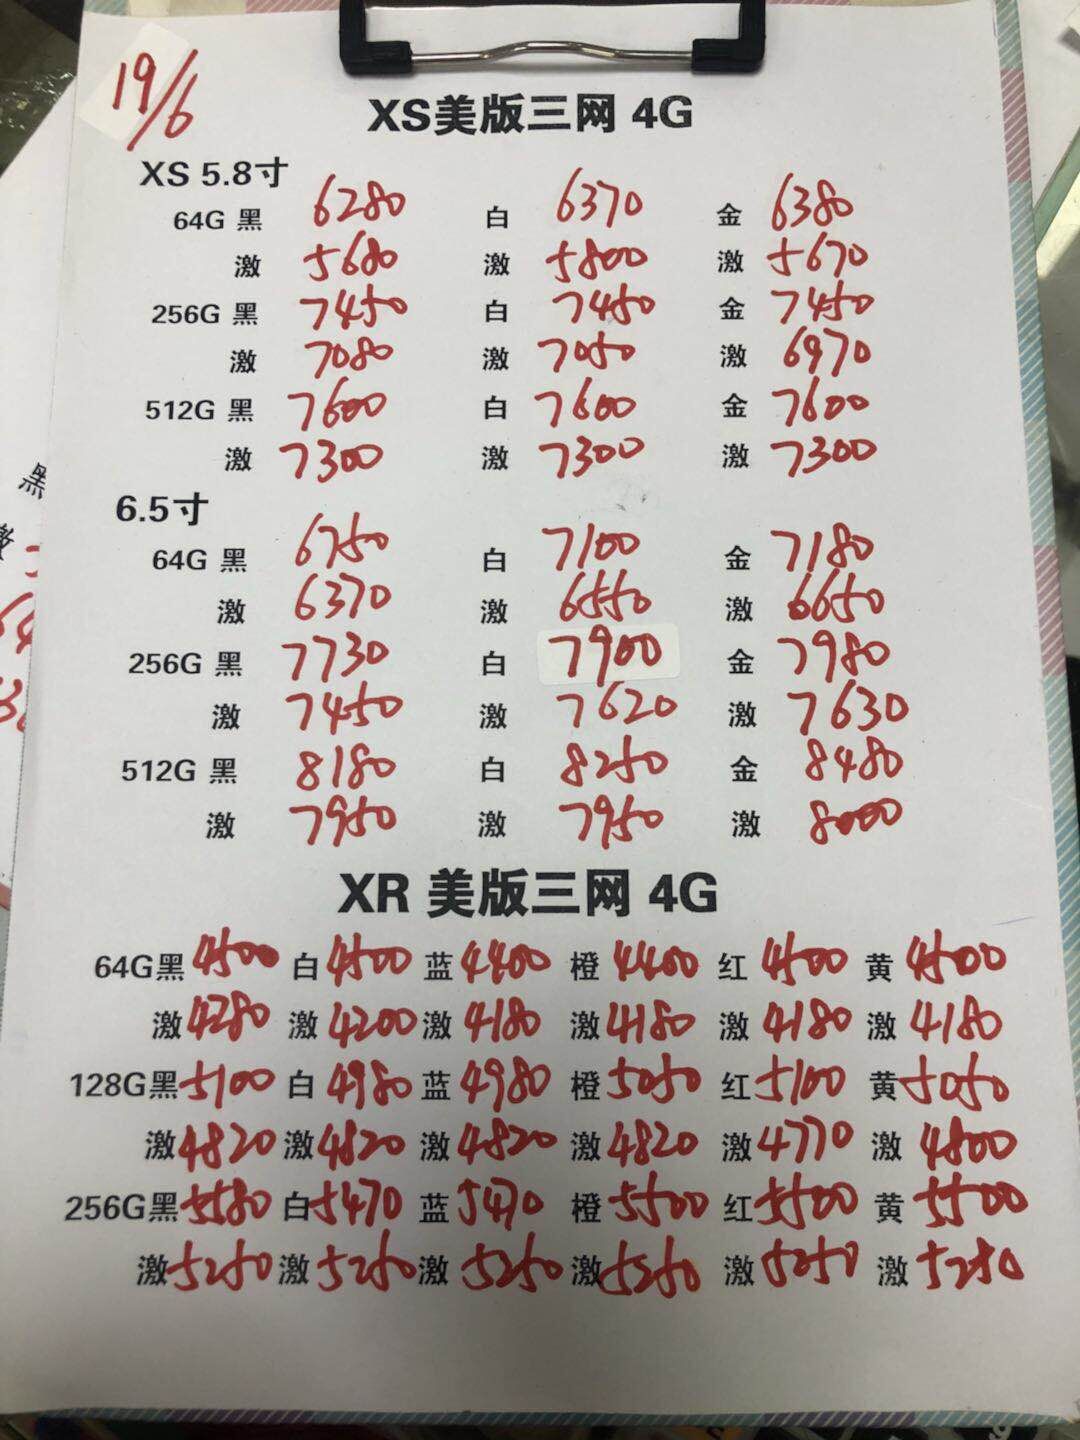 19/6
XS美版三网 4G
XS 5.8寸
64G 黑 6280 白 6370 金 6380
激 5680 激 5800 激 5670
256G 黑 7450 白 7450 金 7450
激 7080 激 7050 激 6970
512G 黑 7600 白 7600 金 7600
激 7300 激 7300 激 7300
6.5寸
64G 黑 6750 白 7100 金 7180
激 6370 激 6550 激 6650
256G 黑 7730 白 7900 金 7980
激 7450 激 7620 激 7630
512G 黑 8180 白 8250 金 8480
激 7950 激 7950 激 8000
XR 美版三网 4G
64G黑 4500 白 4500 蓝 4400 橙 4400 红 4500 黄 4500
激 4280 激 4200 激 4180 激 4180 激 4180 激 4180
128G黑 5100 白 4980 蓝 4980 橙 5050 红 5100 黄 5050
激 4820 激 4820 激 4820 激 4820 激 4770 激 4800
256G黑 5580 白 5470 蓝 5470 橙 5500 红 5500 黄 5500
激 5250 激 5250 激 5250 激 5250 激 5250 激 5250
黑